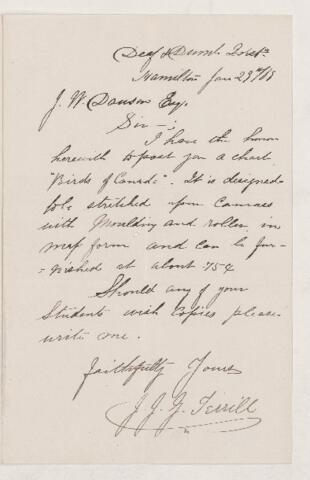 Deaf & Dumb
Hamilton Jan 29th
J. W. Dawson Esq.
Sir —;
I have the honor
herewith to post you a chart
"Birds of Canada". It is designed
to be stretched upon Canvass
with Moulding and roller, in
map form and can be fur-
=nished at about 75¢
Should any of your
Students wish Copies please
write one.
faithfully Yours
J. J. G. Terrill